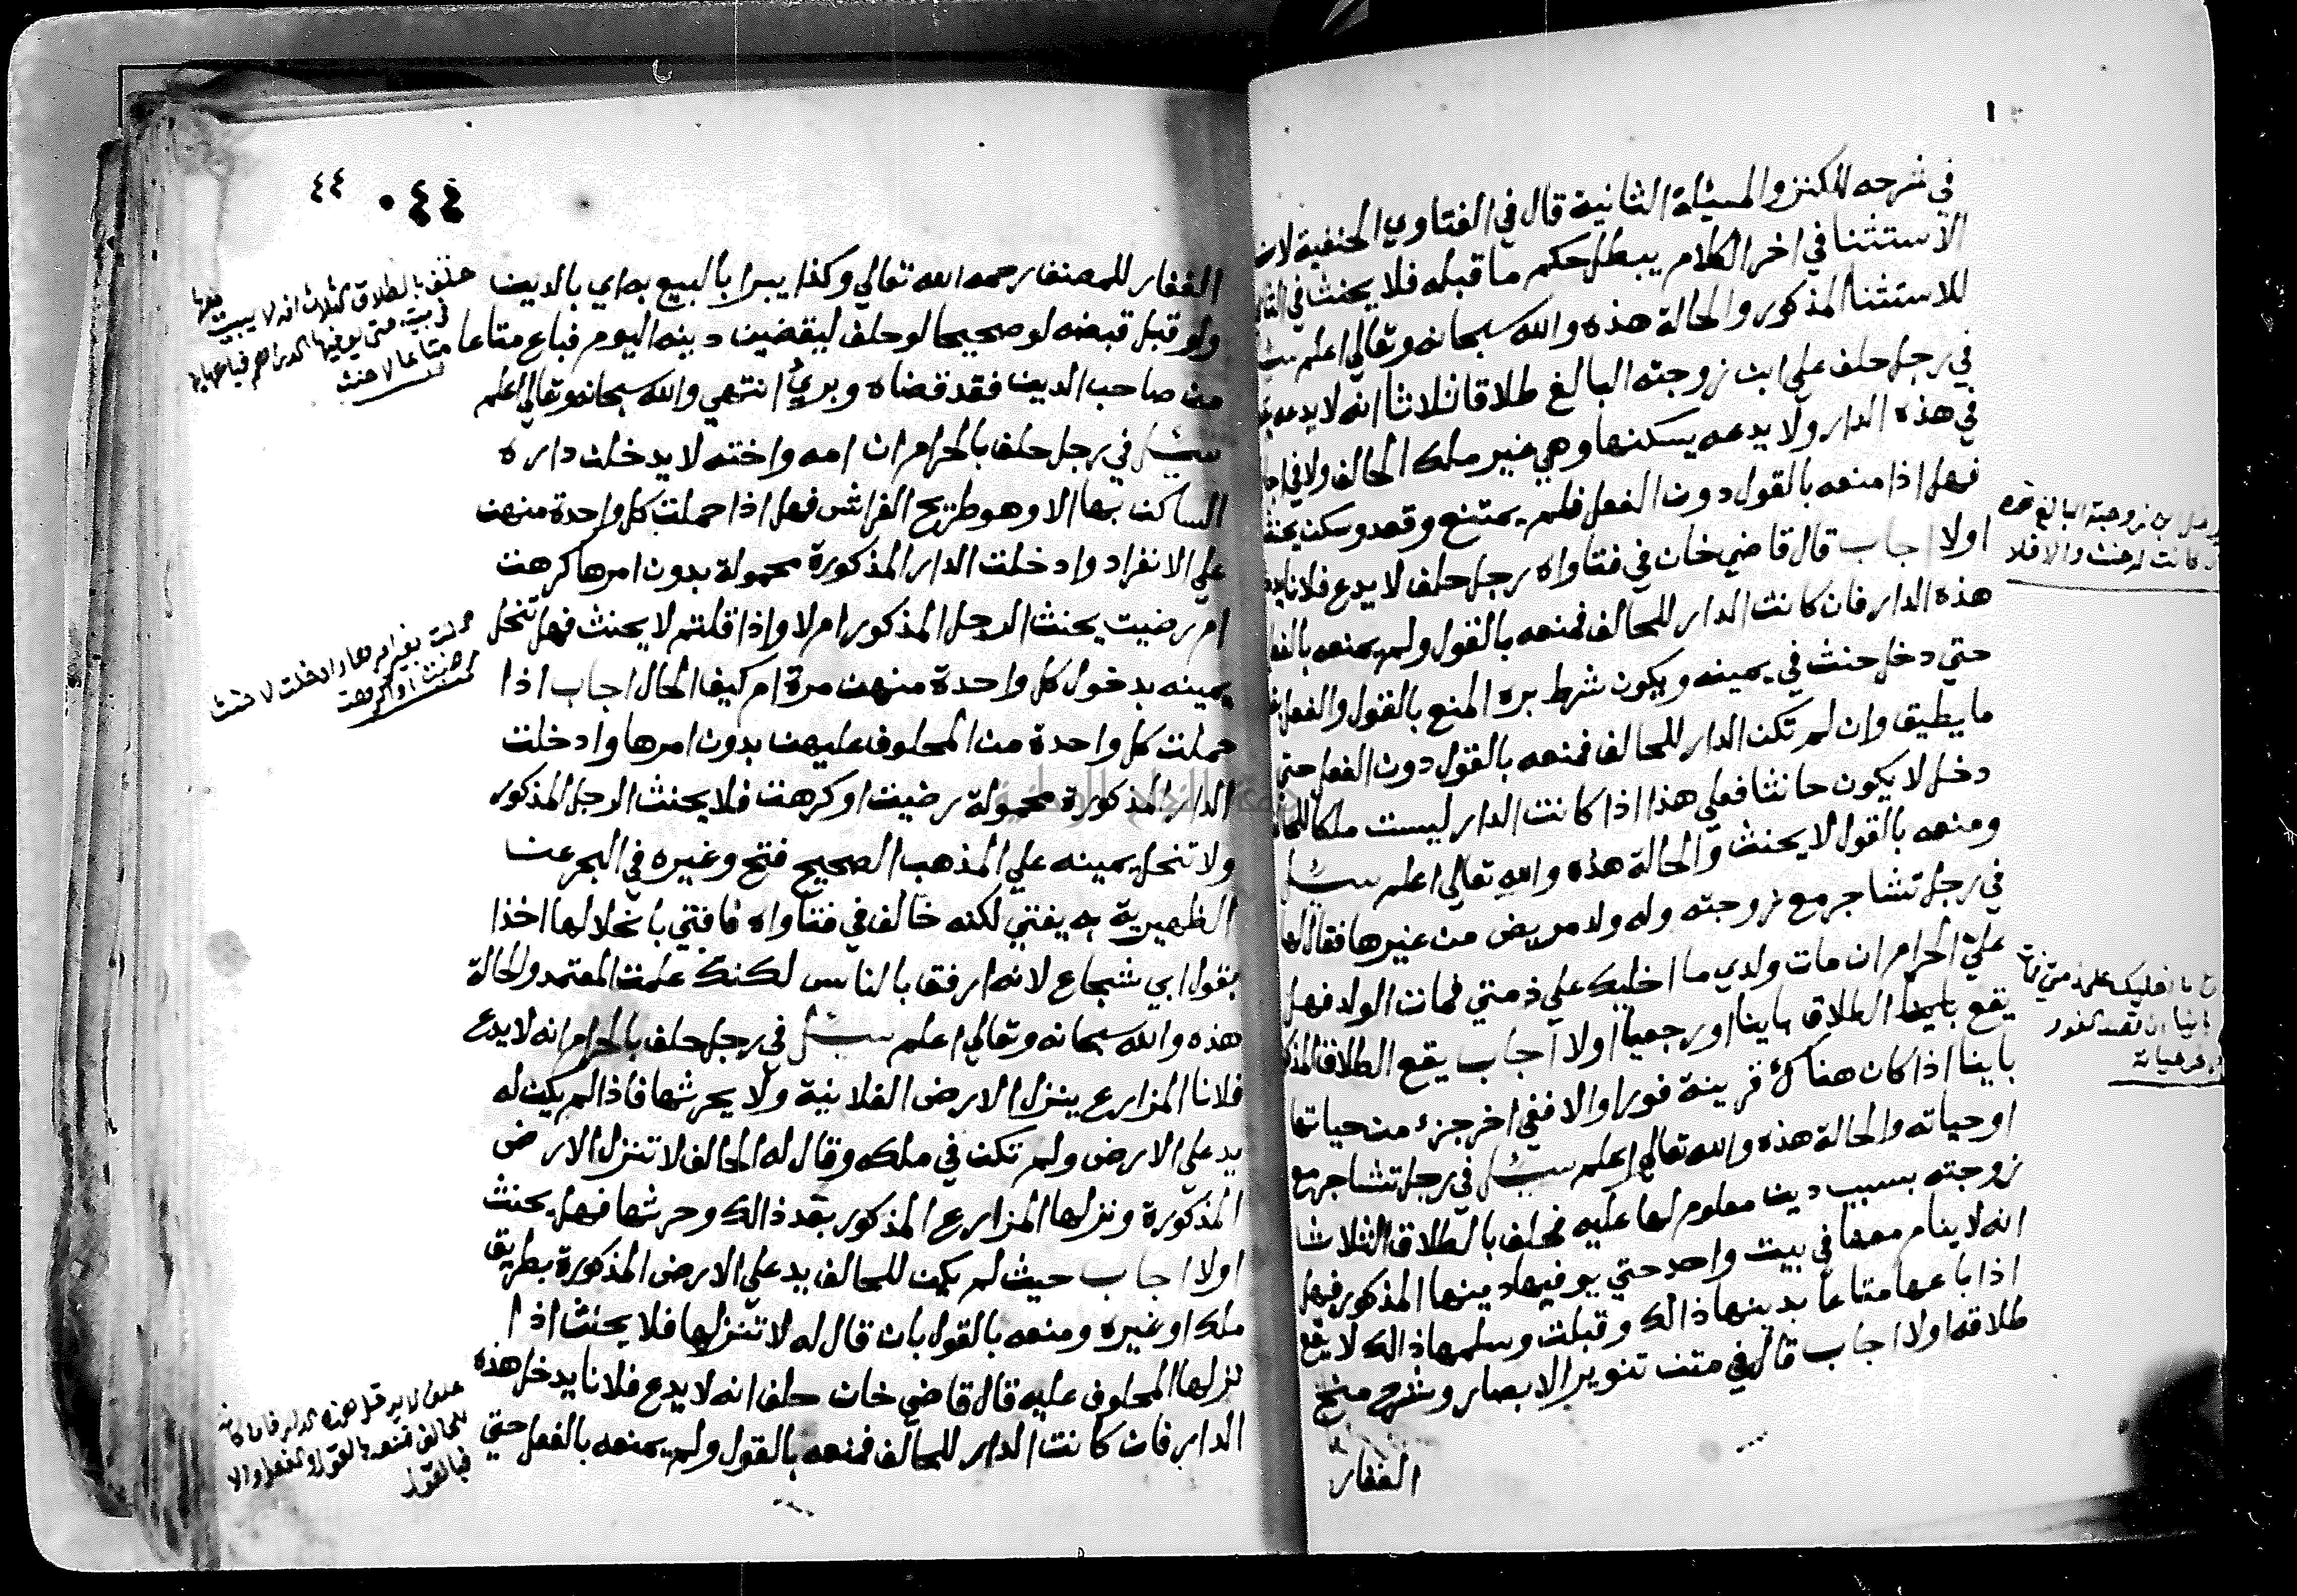 في شرحه للكنز والمسئلة الثانية قال في الفتاوي الحنفية لان
الاستثنا في اخر الكلام يبطل حكم ما قبله فلا يحنث في
للاستثنا المذكور والحالة هذه والله سبحانه وتعالي اعلم
في رجل حلف علي ابن زوجته البالغ طلاقا ثلاثا انه لا يدعه
في هذه الدار ولا يدعه يسكنها وهي غير ملك الحالف ولا في
فهل اذا منعه بالقول دون الفعل فلم يمتنع وقعد وسكن يحنث
اولا اجاب قال قاضي خان في فتاواه رجل حلف لا يدع فلانا
هذه الدار فان كانت الدار للحالف فمنعه بالقول ولم يمنعه بالفعل
حتي دخل حنث في يمينه ويكون شرط بره المنع بالقول والفعل
ما يطيق وان لم تكن الدار للحالف فمنعه بالقول دون الفعل حتي
دخل لا يكون حانثا فعلي هذا اذا كانت الدار ليست ملكا
ومنعه بالقول لا يحنث والحالة هذه والله تعالي اعلم سئل
في رجل تشاجر مع زوجته وله ولد مريض من غيرها فقال لها
علي الحرام ان مات ولدي ما اخليك علي ذمتي فمات الولد فهل
يقع بهذا الطلاق باينا او رجعيا اولا اجاب يقع الطلاق
باينا اذا كان هناك قرينة فورا والا ففي اخر جزء من حياتها
او حياته والحالة هذه والله تعالي اعلم سئل في رجل تشاجر مع
زوجته بسبب دين معلوم لها عليه فحلف بالطلاق الثلاث
انه لا ينام معها في بيت واحد حتي يوفيها دينها المذكور فهل
اذا باعها متاعا بدينها ذالك وقبلت وسلمها ذالك لا يقع
طلاقه اولا اجاب قال في متن تنوير الابصار وشرحه منح
الغفار
ابن زوجته البالغ
كانت له حنث والا فلا
ما اخليك علي ذمتي
٤٤
٠٤٤
الغفار للمصنف رحمه الله تعالي وكذا يبرا بالبيع به اي بالدين
ولو قبل قبضه لو صحيحا لو حلف ليقضين دينه اليوم فباع متاعا
من صاحب الدين فقد قضاه وبرئ انتهي والله سبحانه وتعالي اعلم
سئل في رجل حلف بالحرام ان امه واخته لا يدخلن داره
الساكن بها الا وهو طريح الفراش فهل اذا حملت كل واحدة منهن
علي الانفراد وادخلت الدار المذكورة محمولة بدون امرها كرهت
ام رضيت يحنث الرجل المذكور ام لا واذا قلتم لا يحنث فهل تنحل
يمينه بدخول كل واحدة منهن مرة ام كيف الحال اجاب اذا
حملت كل واحدة من المحلوف عليهن بدون امرها وادخلت
الدار المذكورة محمولة رضيت او كرهت فلا يحنث الرجل المذكور
ولا تنحل يمينه علي المذهب الصحيح فتح وغيره في البحر عن
الظهيرية به يفتي لكنه خالف في فتاواه فافتي بانحلالها اخذا
بقول ابي شجاع لانه ارفق بالناس لكنك علمت المعتمد والحالة
هذه والله سبحانه وتعالي اعلم سئل في رجل حلف بالحرام انه لا يدع
فلانا المزارع ينزل الارض الفلانية ولا يحرثها فاذا لم يكن له
يد علي الارض ولم تكن في ملكه وقال له الحالف لا تنزل الارض
المذكورة ونزلها المزارع المذكور بعد ذالك وحرثها فهل يحنث
اولا اجاب حيث لم يكن للحالف يد علي الارض المذكورة بطريق
ملك او غيره ومنعه بالقول بان قال له لا تنزلها فلا يحنث اذا
نزلها المحلوف عليه قال قاضي خان حلف انه لا يدع فلانا يدخل هذه
الدار فان كانت الدار للحالف فمنعه بالقول ولم يمنعه بالفعل حتي
حلف بالطلاق الثلاث انه لا يبيت معها
في بيت حتي يوفيها الدراهم فباعها بها
متاعا لا حنث
حملت بغير امرها وادخلت لا حنث
رضيت او كرهت
حلف لا يدخل هذه الدار فان كانت
للحالف فمنعه بالقول والفعل والا
فبالقول